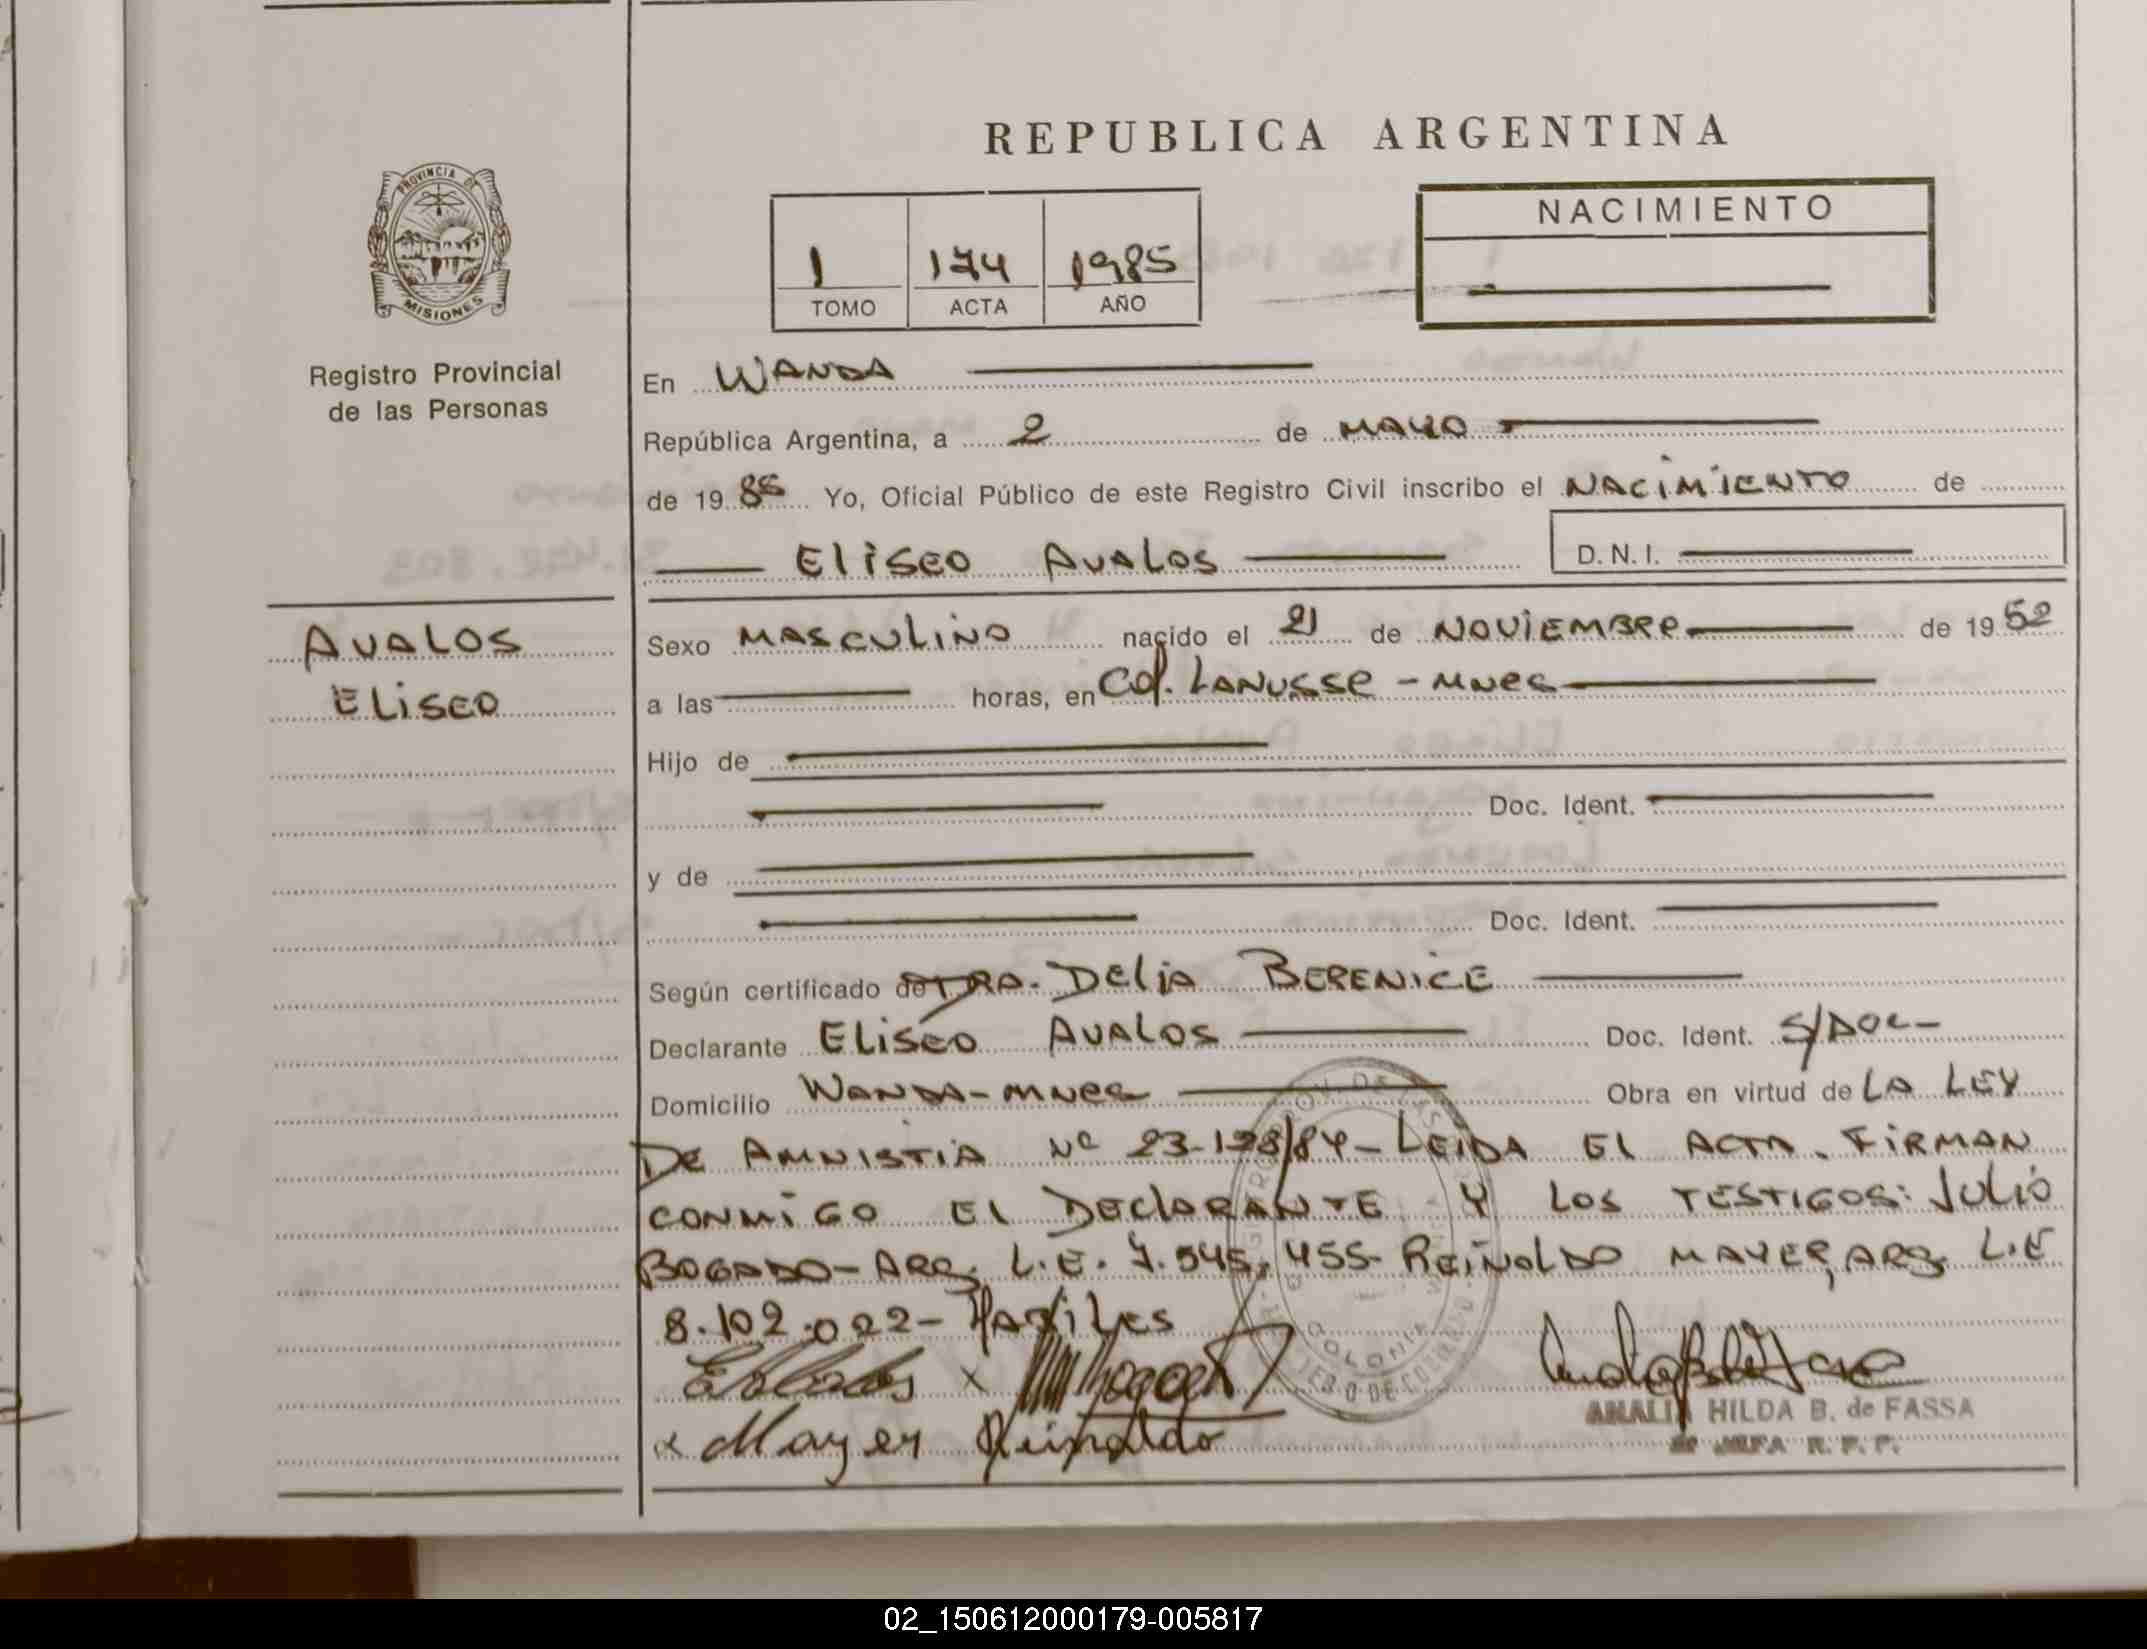 REPUBLICA ARGENTINA
PROVINCIA DE
MISIONES
Registro Provincial
de las Personas
1 174 1985
TOMO ACTA AÑO
NACIMIENTO
En WANDA
República Argentina, a 2 de MAYO
de 19 85 Yo, Oficial Público de este Registro Civil inscribo el NACIMIENTO de
ELISEO AVALOS D. N. I.
AVALOS
ELISEO
Sexo MASCULINO nacido el 21 de NOVIEMBRE de 19 52
a las horas, en Col. LANUSSE - MNES
Hijo de
Doc. Ident.
y de
Doc. Ident.
Según certificado de DRA. DELIA BERENICE
Declarante ELISEO AVALOS Doc. Ident. S/DOC-
Domicilio WANDA-MNES Obra en virtud de LA LEY
DE AMNISTIA Nº 23.128/84 - LEIDA EL ACTA. FIRMAN
CONMIGO EL DECLARANTE Y LOS TESTIGOS: JULIO
BOGADO - ARG. L.E. 7.545.455- REINOLDO MAYER, ARG. L.E
8.102.022-
x
x Mayer Reinoldo
COLONIA
ANALIA HILDA B. de FASSA
JEFA R. P. P.
02_150612000179-005817